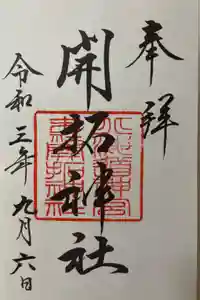 奉拝
開拓神社
令和三年九月六日